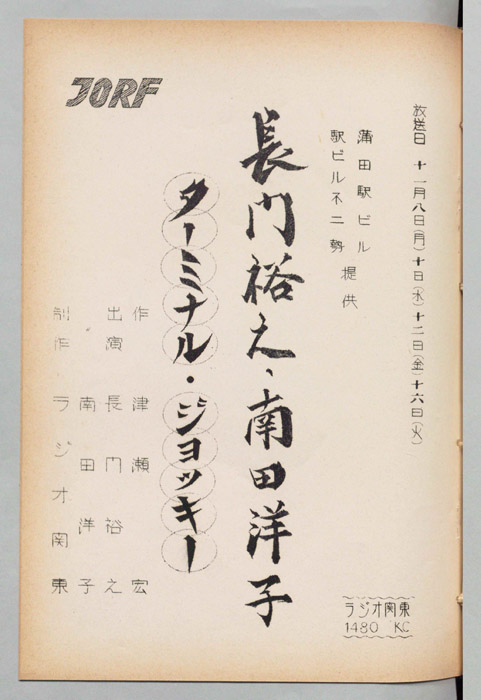 放送日 十一月八日(月)十日(水)十二日(金)十六日(火)
蒲田駅ビル
駅ビルネ二勢 提供
長門裕之、南田洋子
ターミナル・ジョッキー
JORF
作 津瀬宏
出演 長門裕之
南田洋子
制作 ラジオ関東
ラジオ関東
1480 KC